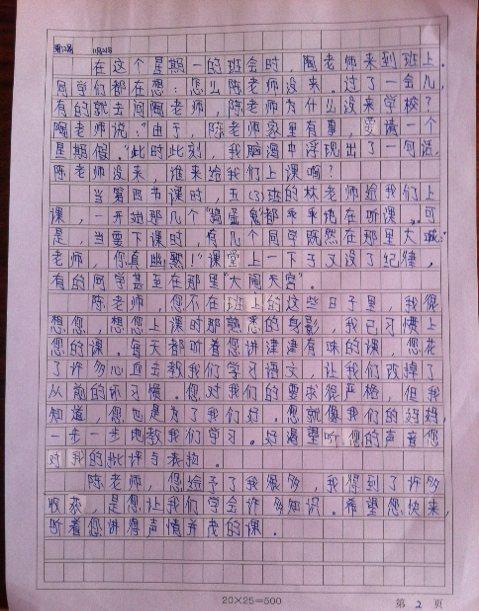 第12篇 11月21日
在这个星期一的班会时，陶老师来到班上。
同学们都在想：怎么陈老师没来。过了一会儿，
有的就去问陶老师，陈老师为什么没来学校？
陶老师说：“由于，陈老师家里有事，要请一个
星期假。”此时此刻，我脑海中浮现出了一句话，
陈老师没来，谁来给我们上课啊？
当第四节课时，五(3)班的林老师给我们上
课，一开始那几个“捣蛋鬼”都乖乖地在听课。可
是，当要下课时，有几个同学既然在那里大喊：“
老师，你真幽默！”课堂上一下子又没了纪律，
有的同学甚至在那里“大闹天宫”。
陈老师，您不在班上的这些日子里，我很
想您，想您上课时那熟悉的身影，我已习惯上
您的课。每天都听着您讲津津有味的课，您花
了许多心血去教我们学习语文，让我们改掉了
从前的坏习惯。您对我们的要求很严格，但我
知道，您也是为了我们好。您就像我们的妈妈，
一步一步地教我们学习。好渴望听您的声音您
对我的批评与表扬。
陈老师，您给予了我很多，我得到了许多
收获，是您让我们学会许多知识。希望您快来，
听着您讲得声情并茂的课。
20×25=500
第 2 页